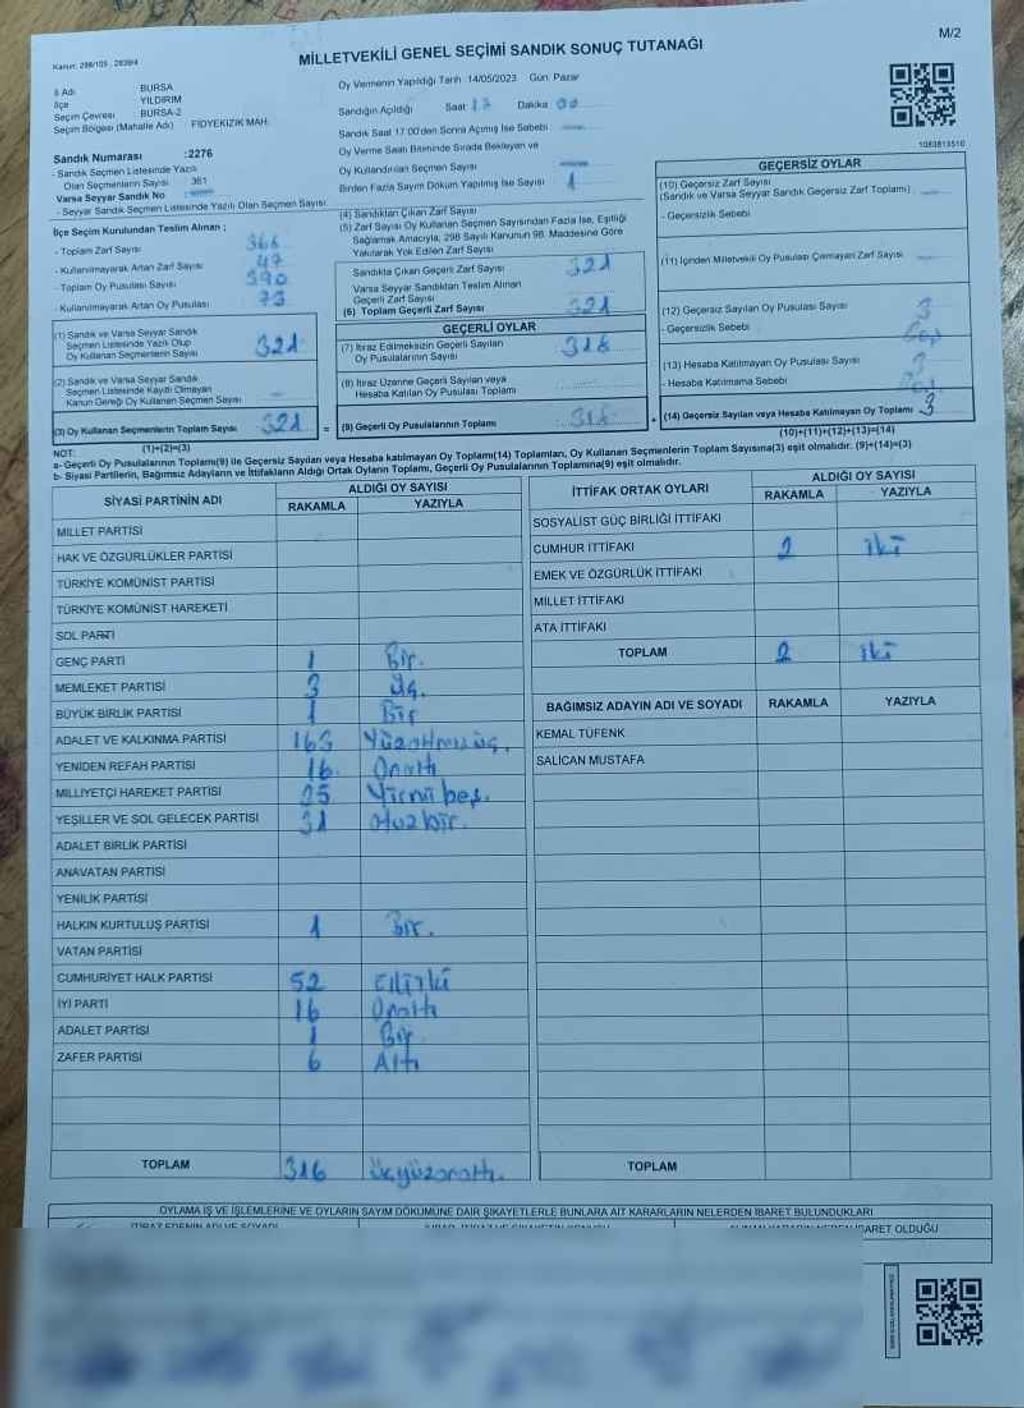 M/2
MİLLETVEKİLİ GENEL SEÇİMİ SANDIK SONUÇ TUTANAĞI
İl Adı BURSA
İlçe YILDIRIM
Seçim Çevresi BURSA-2
Seçim Bölgesi (Mahalle Adı) FİDYEKIZIK MAH.
Sandık Numarası :2276
- Sandık Seçmen Listesinde Yazılı
Olan Seçmenlerin Sayısı 361
Varsa Seyyar Sandık No
- Seyyar Sandık Seçmen Listesinde Yazılı Olan Seçmen Sayısı
Oy Vermenin Yapıldığı Tarih 14/05/2023 Gün Pazar
Sandığın Açıldığı Saat 17 Dakika 00
Sandık Saat 17:00'den Sonra Açılmış İse Sebebi
Oy Verme Saati Bitiminde Sırada Bekleyen ve
Oy Kullandırılan Seçmen Sayısı
Birden Fazla Sayım Döküm Yapılmış İse Sayısı 1
1083813510
İlçe Seçim Kurulundan Teslim Alınan ;
- Toplam Zarf Sayısı 366
- Kullanılmayarak Artan Zarf Sayısı 47
- Toplam Oy Pusulası Sayısı 390
- Kullanılmayarak Artan Oy Pusulası 73
(1) Sandık ve Varsa Seyyar Sandık
Seçmen Listesinde Yazılı Olup
Oy Kullanan Seçmenlerin Sayısı 321
(2) Sandık ve Varsa Seyyar Sandık
Seçmen Listesinde Kayıtlı Olmayan
Kanun Gereği Oy Kullanan Seçmen Sayısı
(3) Oy Kullanan Seçmenlerin Toplam Sayısı 321
(1)+(2)=(3)
(4) Sandıktan Çıkan Zarf Sayısı
(5) Zarf Sayısı Oy Kullanan Seçmen Sayısından Fazla İse, Eşitliği
Sağlamak Amacıyla, 298 Sayılı Kanunun 98. Maddesine Göre
Yakılarak Yok Edilen Zarf Sayısı
Sandıkta Çıkan Geçerli Zarf Sayısı 321
Varsa Seyyar Sandıktan Teslim Alınan
Geçerli Zarf Sayısı
(6) Toplam Geçerli Zarf Sayısı 321
GEÇERLİ OYLAR
(7) İtiraz Edilmeksizin Geçerli Sayılan
Oy Pusulalarının Sayısı 318
(8) İtiraz Üzerine Geçerli Sayılan veya
Hesaba Katılan Oy Pusulası Toplamı
= (9) Geçerli Oy Pusulalarının Toplamı 318
GEÇERSİZ OYLAR
(10) Geçersiz Zarf Sayısı
(Sandık ve Varsa Seyyar Sandık Geçersiz Zarf Toplamı)
- Geçersizlik Sebebi
(11) İçinden Milletvekili Oy Pusulası Çıkmayan Zarf Sayısı
(12) Geçersiz Sayılan Oy Pusulası Sayısı 3
- Geçersizlik Sebebi
(13) Hesaba Katılmayan Oy Pusulası Sayısı
- Hesaba Katılmama Sebebi
+ (14) Geçersiz Sayılan veya Hesaba Katılmayan Oy Toplamı 3
(10)+(11)+(12)+(13)=(14)
NOT:
a- Geçerli Oy Pusulalarının Toplamı(9) ile Geçersiz Sayılan veya Hesaba katılmayan Oy Toplamı(14) Toplamları, Oy Kullanan Seçmenlerin Toplam Sayısına(3) eşit olmalıdır. (9)+(14)=(3)
b- Siyasi Partilerin, Bağımsız Adayların ve İttifakların Aldığı Ortak Oyların Toplamı, Geçerli Oy Pusulalarının Toplamına(9) eşit olmalıdır.
SİYASİ PARTİNİN ADI ALDIĞI OY SAYISI
RAKAMLA YAZIYLA
MİLLET PARTİSİ
HAK VE ÖZGÜRLÜKLER PARTİSİ
TÜRKİYE KOMÜNİST PARTİSİ
TÜRKİYE KOMÜNİST HAREKETİ
SOL PARTİ
GENÇ PARTİ 1 Bir.
MEMLEKET PARTİSİ 3 üç.
BÜYÜK BİRLİK PARTİSİ 1 Bir
ADALET VE KALKINMA PARTİSİ 163 Yüzaltmışüç.
YENİDEN REFAH PARTİSİ 16. Onaltı
MİLLİYETÇİ HAREKET PARTİSİ 25 Yirmi beş.
YEŞİLLER VE SOL GELECEK PARTİSİ 31 otuz bir.
ADALET BİRLİK PARTİSİ
ANAVATAN PARTİSİ
YENİLİK PARTİSİ
HALKIN KURTULUŞ PARTİSİ 1 Bir.
VATAN PARTİSİ
CUMHURİYET HALK PARTİSİ 52 Elliiki
İYİ PARTİ 16 Onaltı
ADALET PARTİSİ 1 Bir
ZAFER PARTİSİ 6 Altı
TOPLAM 316 üçyüzonaltı.
İTTİFAK ORTAK OYLARI ALDIĞI OY SAYISI
RAKAMLA YAZIYLA
SOSYALİST GÜÇ BİRLİĞİ İTTİFAKI
CUMHUR İTTİFAKI 2 iki
EMEK VE ÖZGÜRLÜK İTTİFAKI
MİLLET İTTİFAKI
ATA İTTİFAKI
TOPLAM 2 iki
BAĞIMSIZ ADAYIN ADI VE SOYADI RAKAMLA YAZIYLA
KEMAL TÜFENK
SALİCAN MUSTAFA
TOPLAM
OYLAMA İŞ VE İŞLEMLERİNE VE OYLARIN SAYIM DÖKÜMÜNE DAİR ŞİKAYETLERLE BUNLARA AİT KARARLARIN NELERDEN İBARET BULUNDUKLARI